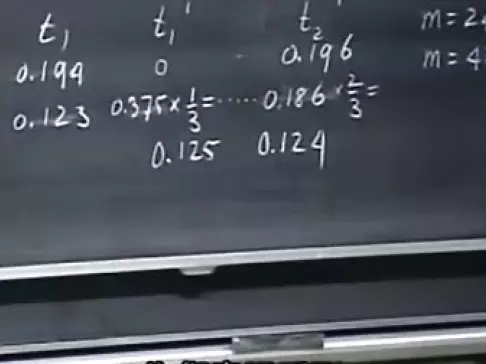 t₁ t₁' t₂'
0.194 0 - 0.196
0.123 0.375 × 1/3 = ····· 0.186 × 2/3 =
0.125 0.124
m = 2
m = 4